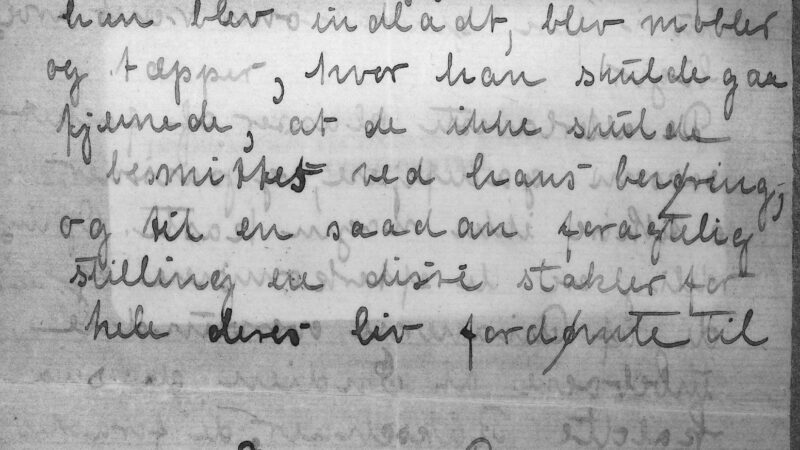 han blev indladt, blev møbler
og tæpper, hvor han skulde gaa
fjærnede, at de ikke skulde
besmittes ved hans berøring;
og til en saadan foragtelig
stilling er disse stakler for
hele deres liv fordømte til